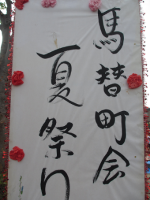 馬替町会
夏祭り